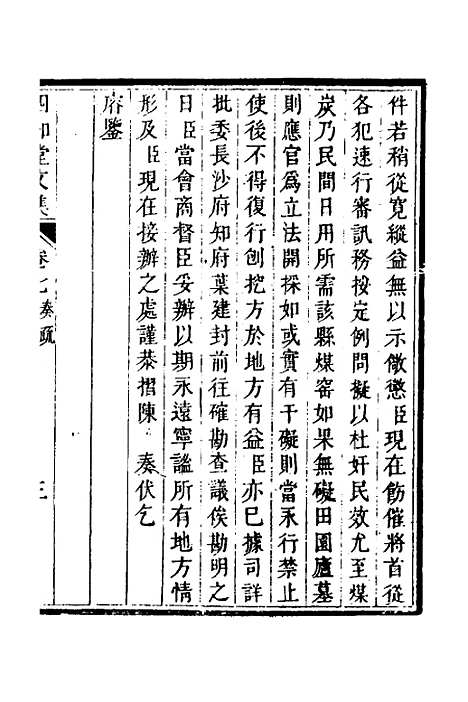 件若稍從寬縱益無以示儆懲臣現在飭催將首從
各犯速行審訊務按定例問擬以杜奸民效尤至煤
炭乃民間日用所需該縣煤窑如果無礙田園廬墓
則應官爲立法開採如或實有干礙則當永行禁止
使後不得復行刨挖方於地方有益臣亦已據司詳
批委長沙府知府葉建封前往確勘查議俟勘明之
日臣當會商督臣妥辦以期永遠寧謐所有地方情
形及臣現在接辦之處謹恭摺陳 奏伏乞
睿鑒
四知堂文集 卷七奏疏 三